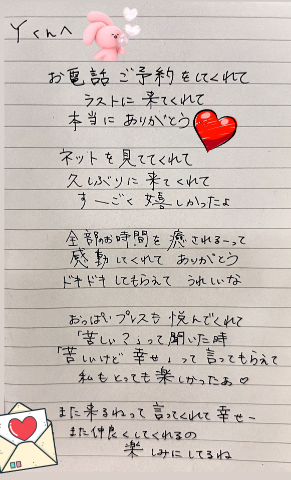 Yくんへ
お電話ご予約をしてくれて
ラストに来てくれて
本当にありがとう
ネットを見ててくれて
久しぶりに来てくれて
すーごく嬉しかったよ
全部のお時間を癒されるーって
感動してくれてありがとう
ドキドキしてもらえてうれしいな
おっぱいプレスも悦んでくれて
「苦しい？」って聞いた時
「苦しいけど幸せ」って言ってもらえて
私もとっても楽しかったぁ♡
また来るねって言ってくれて幸せー
また仲良くしてくれるの
楽しみにしてるね